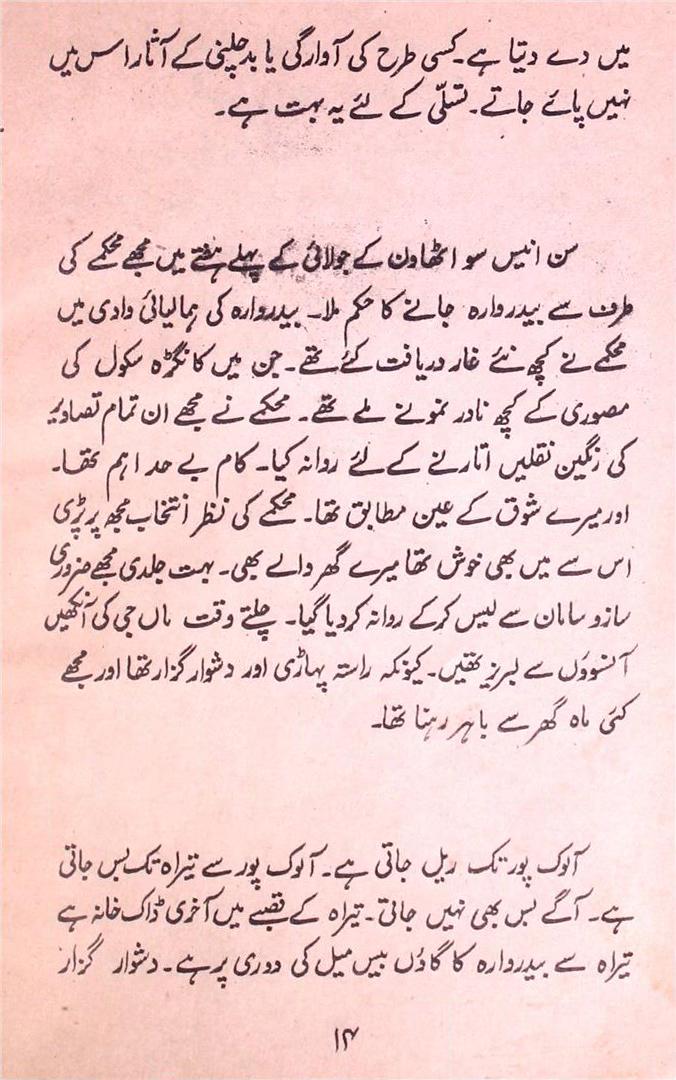 میں دے دیتا ہے۔ کسی طرح کی آوارگی یا بدچلنی کے آثار اس میں
نہیں پائے جاتے۔ تسلّی کے لئے یہ بہت ہے۔
سن انیس سو اٹھاون کے جولائی کے پہلے ہفتے میں مجھے محکمے کی
طرف سے بیدروارہ جانے کا حکم ملا۔ بیدروارہ کی ہمالیائی وادی میں
محکمے نے کچھ نئے غار دریافت کئے تھے۔ جن میں کانگڑہ سکول کی
مصوری کے کچھ نادر نمونے ملے تھے۔ محکمے نے مجھے ان تمام تصاویر
کی رنگین نقلیں اتارنے کے لئے روانہ کیا۔ کام بے حد اہم تھا۔
اور میرے شوق کے عین مطابق تھا۔ محکمے کی نظر انتخاب مجھ پر پڑی
اس سے میں بھی خوش تھا میرے گھر والے بھی۔ بہت جلدی مجھے ضروری
سازو سامان سے لیس کرکے روانہ کردیا گیا۔ چلتے وقت ماں جی کی آنکھیں
آنسوؤں سے لبریز تھیں۔ کیونکہ راستہ پہاڑی اور دشوار گزار تھا اور مجھے
کئی ماہ گھر سے باہر رہنا تھا۔
آلوک پور تک ریل جاتی ہے۔ آلوک پور سے تیراہ تک بس جاتی
ہے۔ آگے بس بھی نہیں جاتی۔ تیراہ کے قصبے میں آخری ڈاک خانہ ہے
تیراہ سے بیدروارہ کا گاؤں بیس میل کی دوری پر ہے۔ دشوار گزار
۱۴